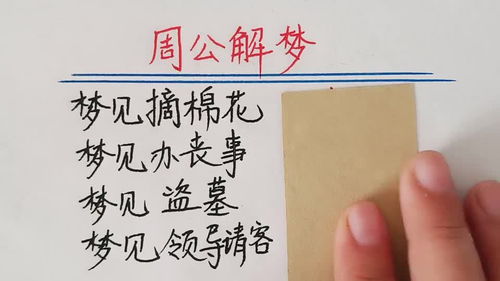 周公解梦
梦见摘棉花
梦见办丧事
梦见盗墓
梦见领导请客